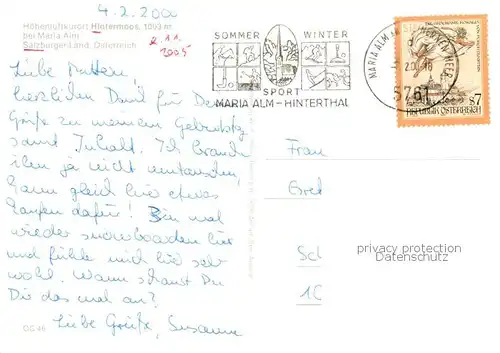 4.2.200
Höhenluftkurort Hintermoos, 1093 m
bei Maria Alm
Salzburger Land, Österreich
11
2005
SOMMER WINTER
SPORT
MARIA ALM - HINTERTHAL
5761
REPUBLIK ÖSTERREICH S7
Liebe Mutter,
herzlichen Dank für De
Grüße zu meinem Geburtstag
samt Inhalt. Ich brauch
ihn ja nicht umtauschen,
kann gleich hier etwas
kaufen dafür! Bin mal
wieder snowboarden hier
und fühle mich hier sehr
wohl. Wann schaust Du
Dir das mal an?
Liebe Grüße, Susanne
Frau
Gret
Sc
10
privacy protection
Datenschutz
DG 46